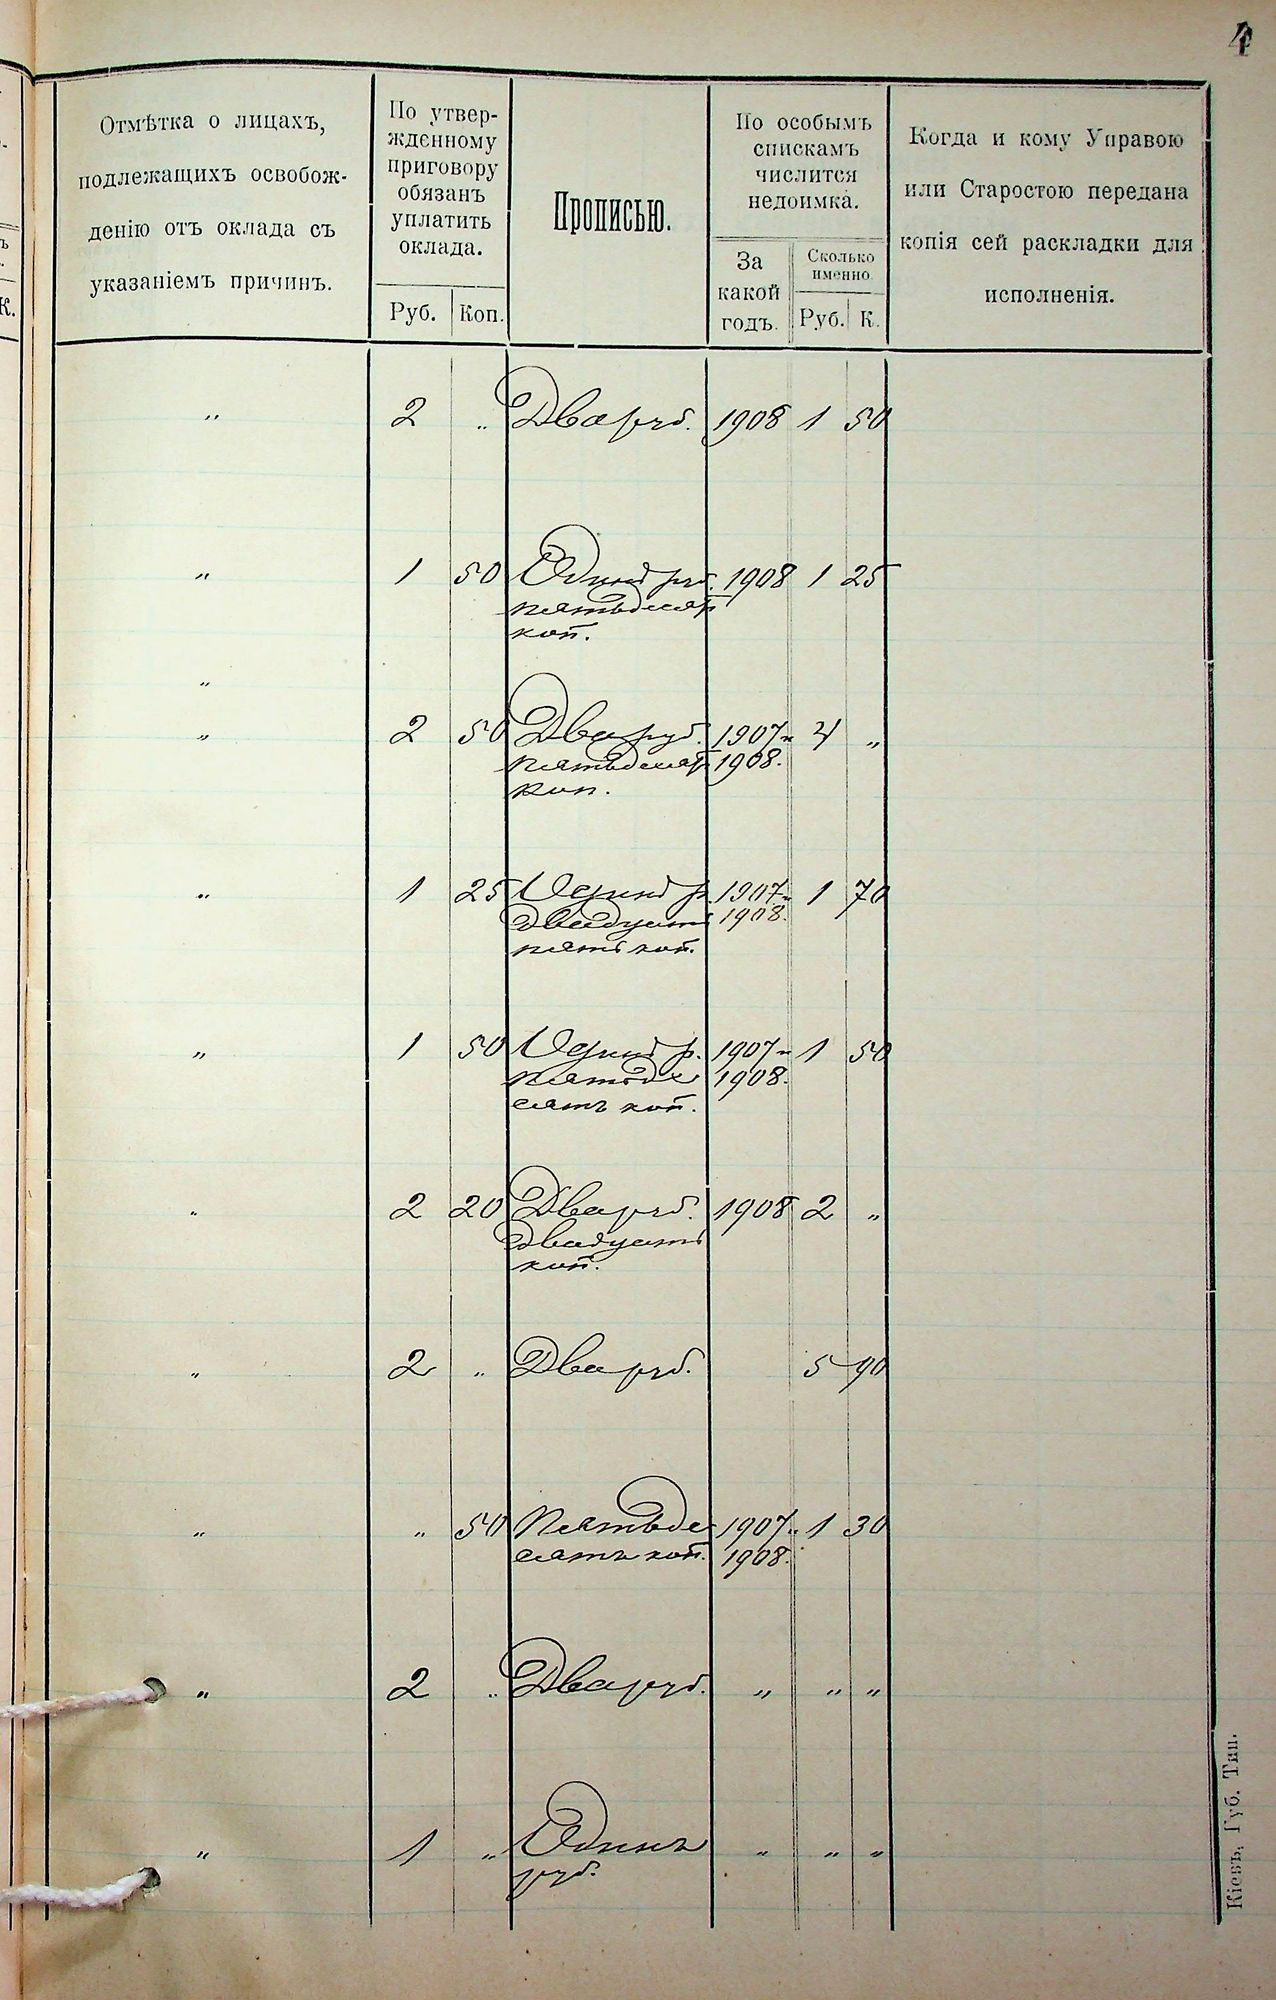 4
Отмѣтка о лицахъ,
подлежащихъ освобож-
денію отъ оклада съ
указаніемъ причинъ.
По утвер-
жденному
приговору
обязанъ
уплатить
оклада.
Руб. Коп.
Прописью.
По особымъ
спискамъ
числится
недоимка.
За
какой
годъ.
Сколько
именно.
Руб. К.
Когда и кому Управою
или Старостою передана
копія сей раскладки для
исполненія.
К.
„ 2 „ Два руб. 1908 1 50
„ 1 50 Одинъ руб. 1908 1 25
пятьдесят
коп.
„
„ 2 50 Два руб. 1907 и 4 „
пятьдесят 1908.
коп.
„ 1 25 Одинъ р. 1907 и 1 70
двадцать 1908.
пять коп.
„ 1 50 Одинъ р. 1907 и 1 50
пятьде 1908.
сятъ коп.
„ 2 20 Два руб. 1908 2 „
двадцать
коп.
„ 2 „ Два руб. 5 90
„ „ 50 Пятьде 1907 и 1 30
сятъ коп. 1908.
„ 2 „ Два руб. „ „ „
„ 1 „ Одинъ „ „ „
руб.
Кіевъ, Губ. Тип.